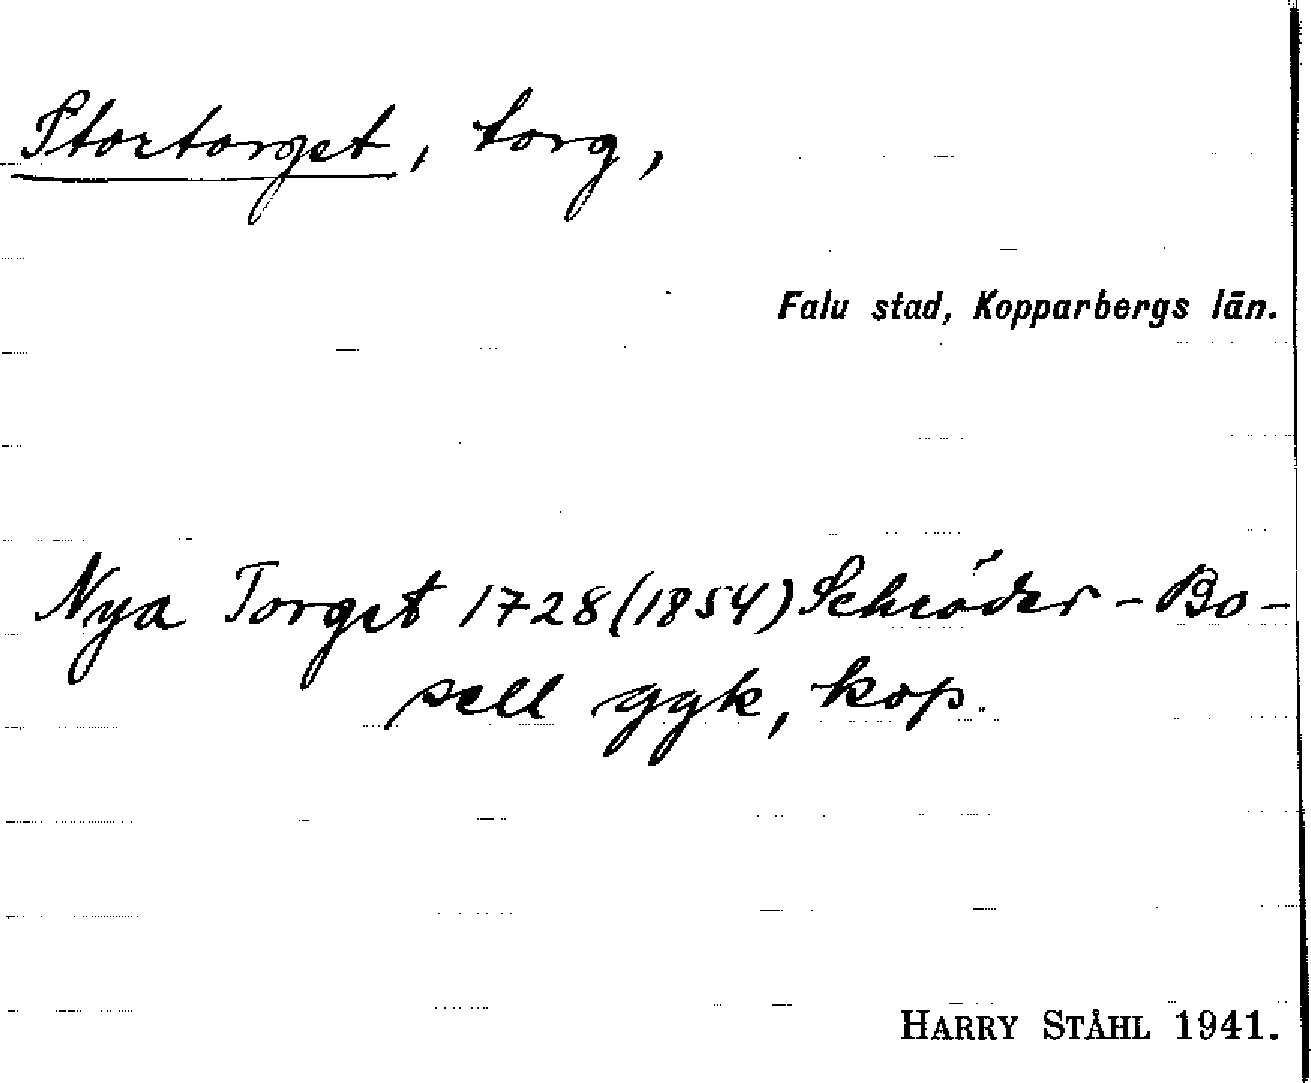 Stortorget, torg,
Falu stad, Kopparbergs län.
Nya Torget 1728 (1854) Schröder-Bo-
sell ggk, kop.
HARRY STÅHL 1941.